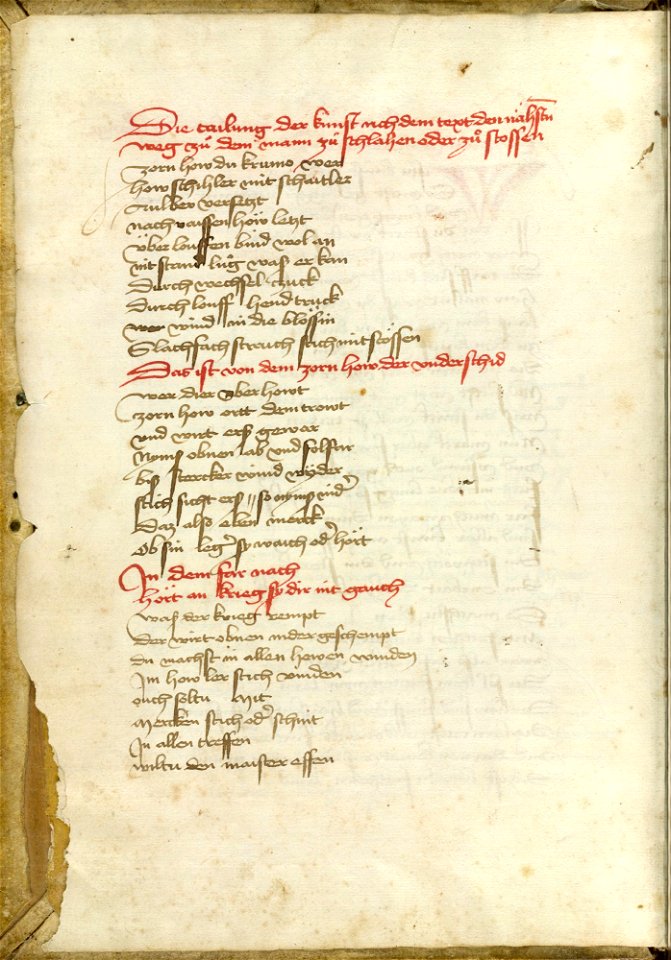 Die tailung der kunst nach dem text den nähstn
weg zů dem mann zů schlahen oder zů stossen
zorn how du krumo wer
how schihler mit schaitler
Aulber versetzt
nach raissen how letzt
über louffen bind wol an
nit stand lůg waß er kan
durch wechsel zuck
durch louff hend truck
wer wind in die blössin
Slach fach strauch stich mit stössen
Das ist von dem zorn how der underschid
wer dier oberhowt
zorn how ortt dem trowt
und wirt erß gewar
Nymß obnen ab und solfar
biß stercker wind wyder
stich sicht erß so nymß nider
Daz also eben merck
Ob sin leger sy waich oder hört
In dem far nach
hört an krieg sy dir nit gauch
waß der krieg rempt
der wirt obnen nider geschempt
du machst in allen hewen winden
Im how ler stich vinden
ouch soltu mit
Mercken stich oder schnit
In allen treffen
wiltu den maister effen